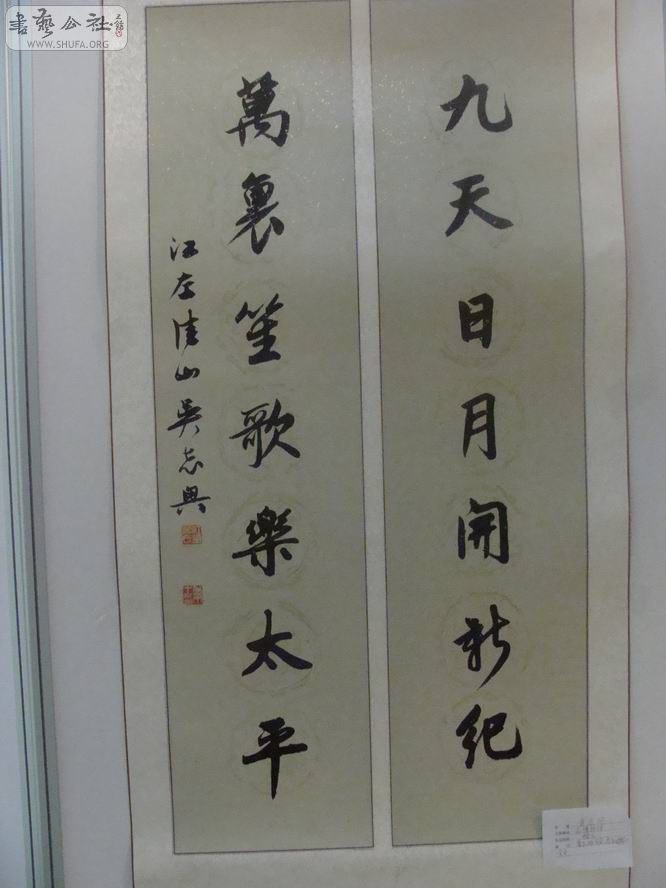 九天日月開新紀
萬裏笙歌樂太平
江左佳山吳志興
書藝公社
WWW.SHUFA.ORG